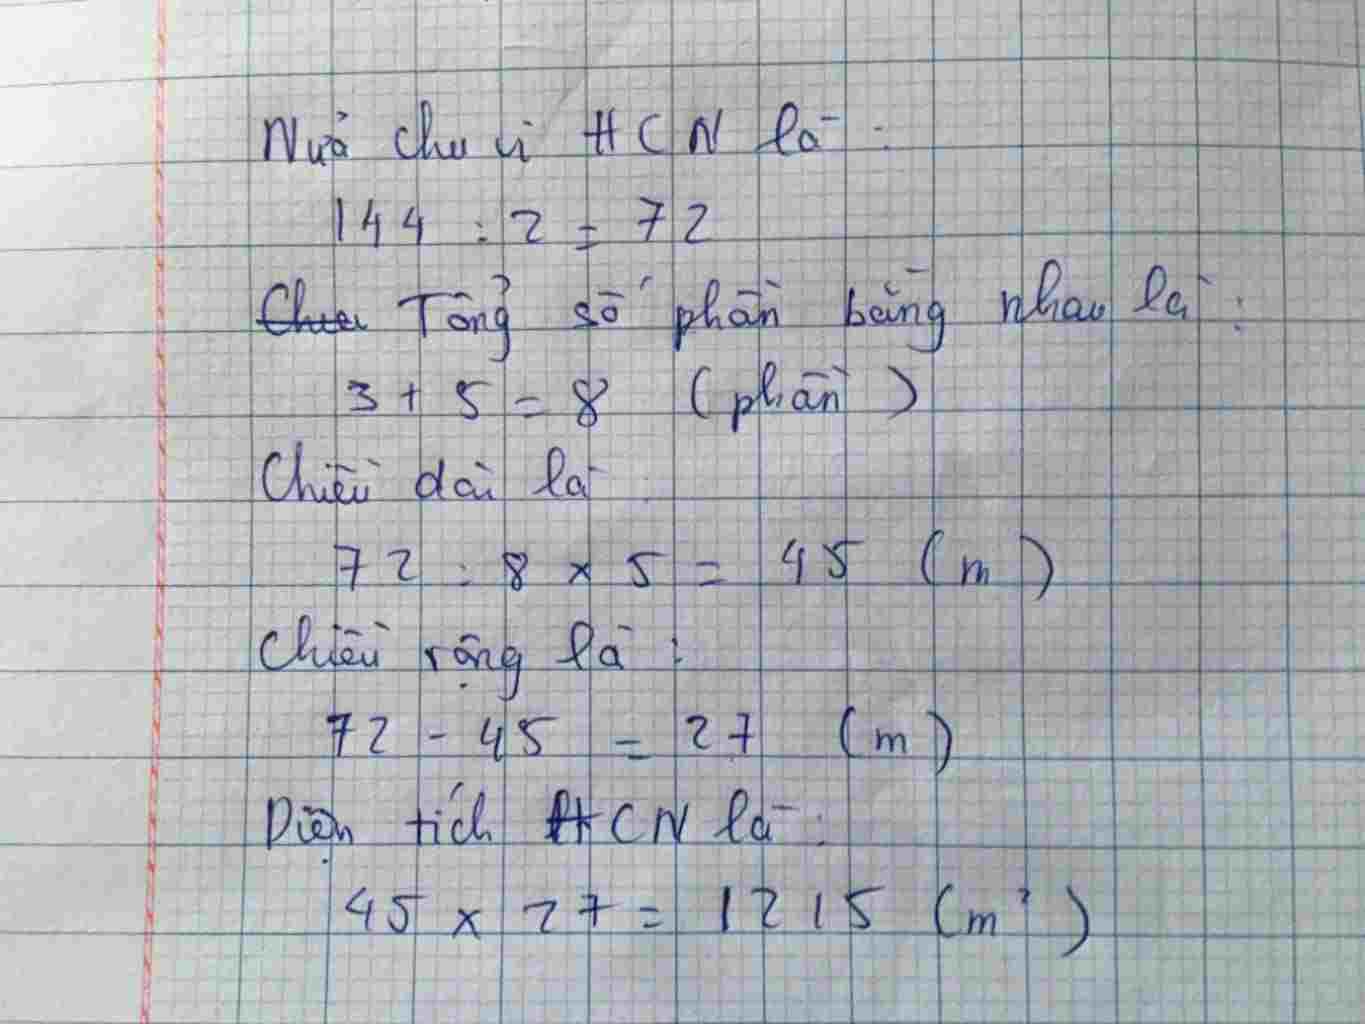 Nửa chu vi HCN là :
144 : 2 = 72
Tổng số phần bằng nhau là :
3 + 5 = 8 (phần)
Chiều dài là :
72 : 8 x 5 = 45 (m)
Chiều rộng là :
72 - 45 = 27 (m)
Diện tích HCN là :
45 x 27 = 1215 (m²)